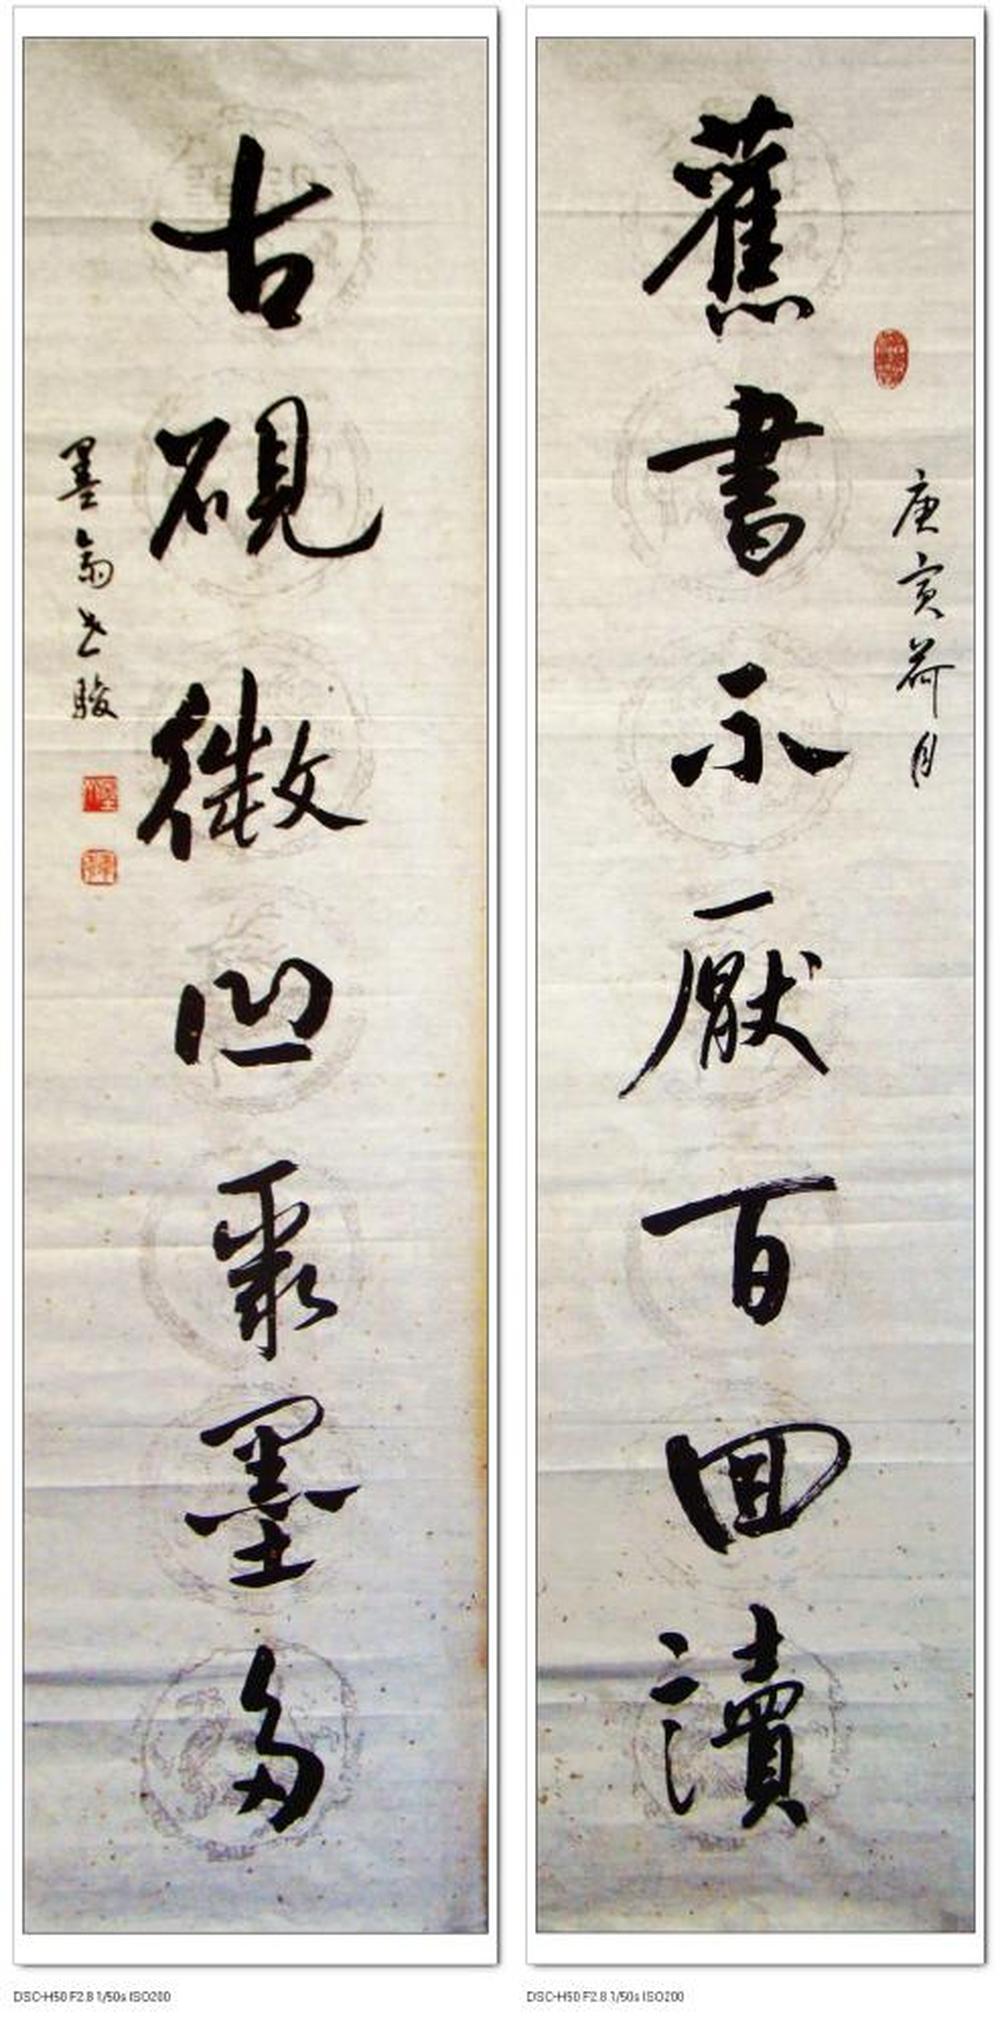 庚寅荷月
舊書不厭百回讀
古硯微凹聚墨多
墨翁 駿
DSC-H50 F2.8 1/50s ISO200
DSC-H50 F2.8 1/50s ISO200